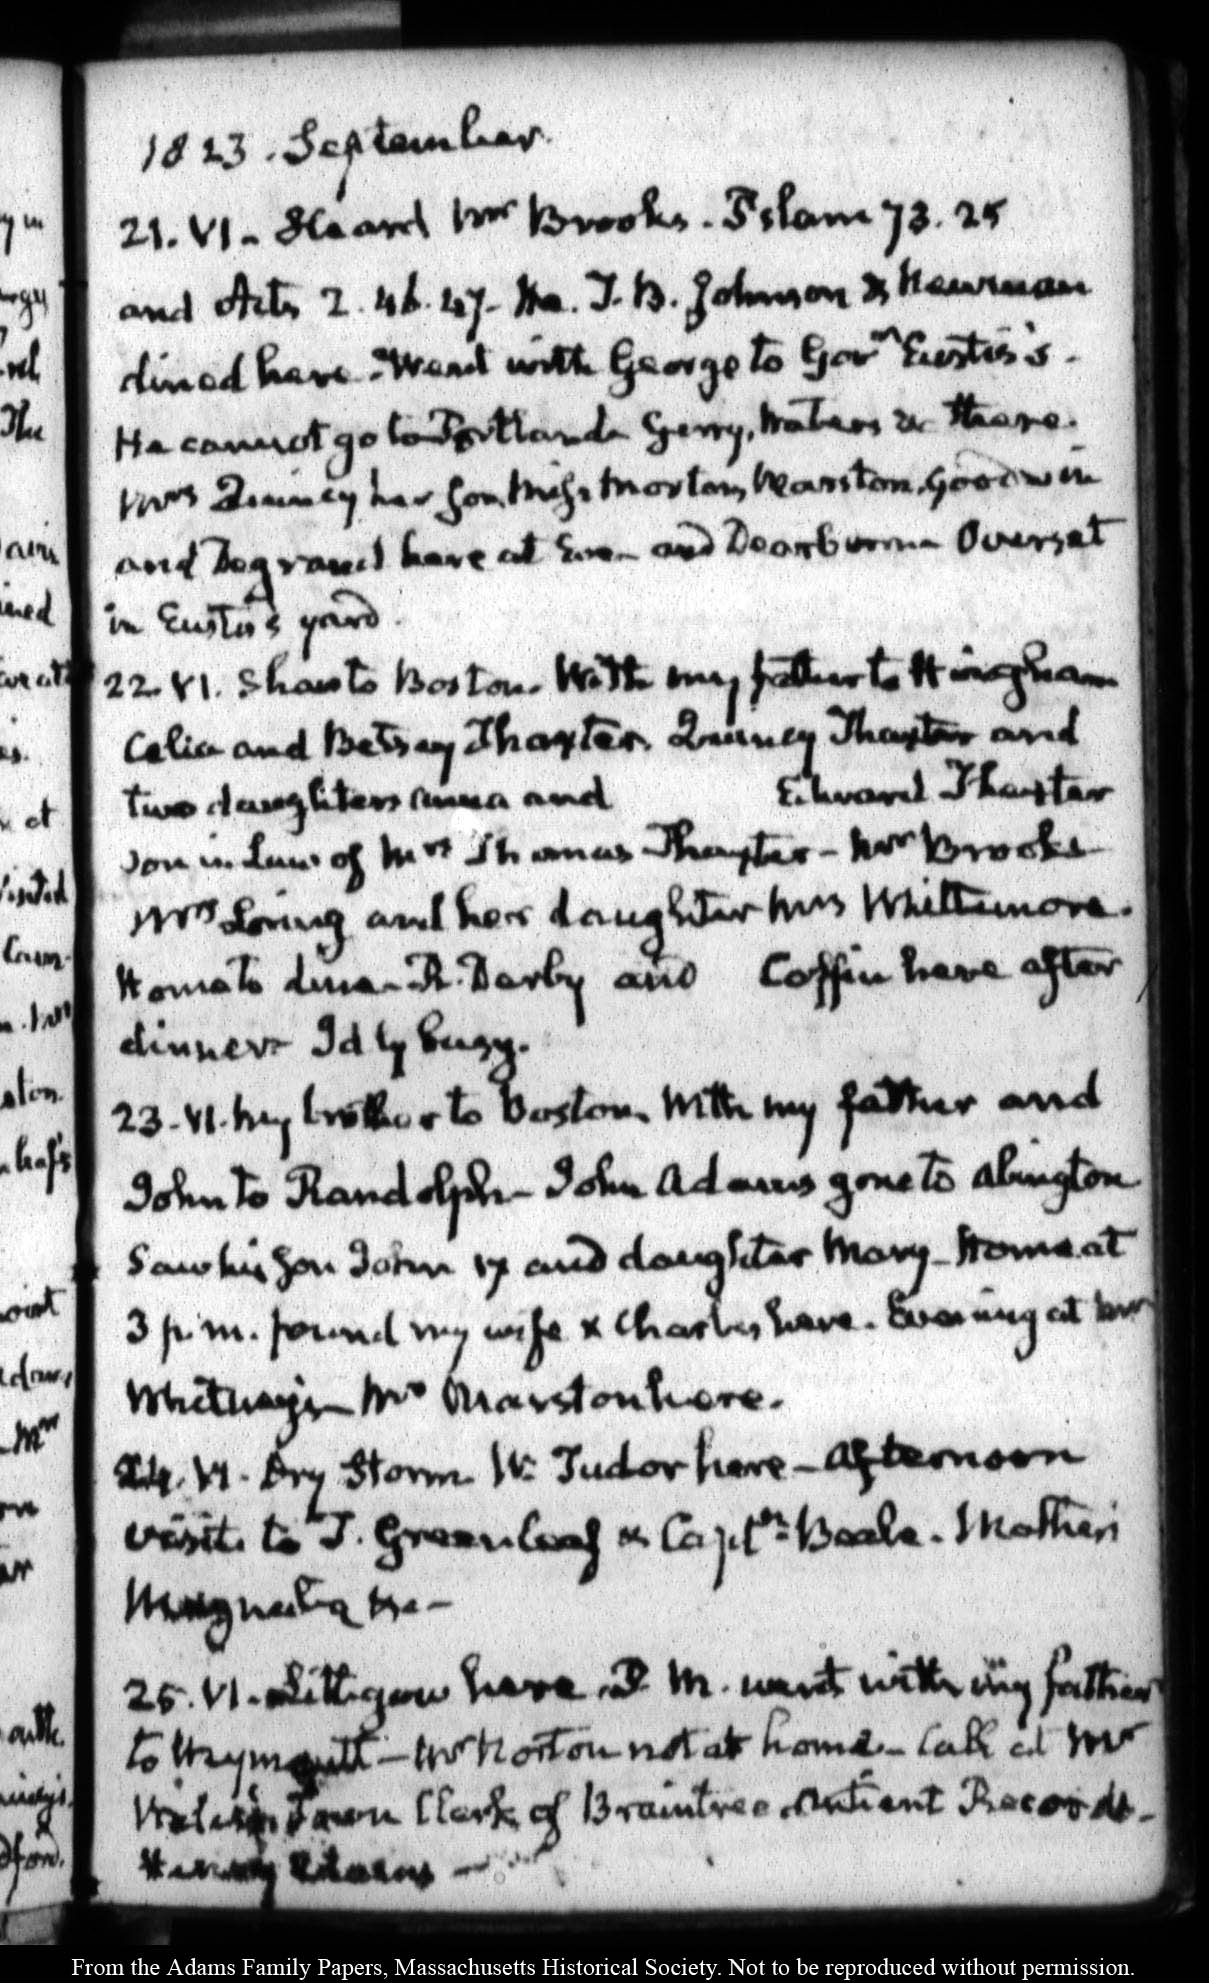 1823. September.
21. VI. Heard Mr Brooks. Psalm 73. 25
and Acts 2. 46. 47. He. T. B. Johnson & Newman
dined here. Went with George to Govr Eustis's.
He cannot go to Portland. Gerry, Waters &c there.
Mrs Quincy her Son, Miss Morton, Marston, Goodwin
and Degrand here at Eve. and Dearborn Overset
in Eustis's yard.
22. VI. Shaw to Boston. With my father to Hingham
Celia and Betsey Thaxter. Quincy Thaxter and
two daughters Anna and Edward Thaxter
son in Law of Mrs Thomas Thaxter - Mr Brooks
Mrs Loring and her daughter Mrs Whittemore.
Home to dine. R. Derby and Coffin here after
dinner. Idly busy.
23. VI. My brother to Boston. With my father and
John to Randolph - John Adams gone to Abington
Saw his Son John 17 and daughter Mary - Home at
3 p.m. found my wife & Charles here. Evening at Mr
Whitney's Mrs Marston here.
24. VI. Dry Storm. W. Tudor here - Afternoon
visits to T. Greenleaf & Captn Beale. Mother's
Magnalia &c -
25. VI. Lithgow here. P. M. went with my father
to Weymouth - Mr Norton not at home - Call at Mr
Town Clerk of Braintree. Antient Records.
Henry Adams -
From the Adams Family Papers, Massachusetts Historical Society. Not to be reproduced without permission.